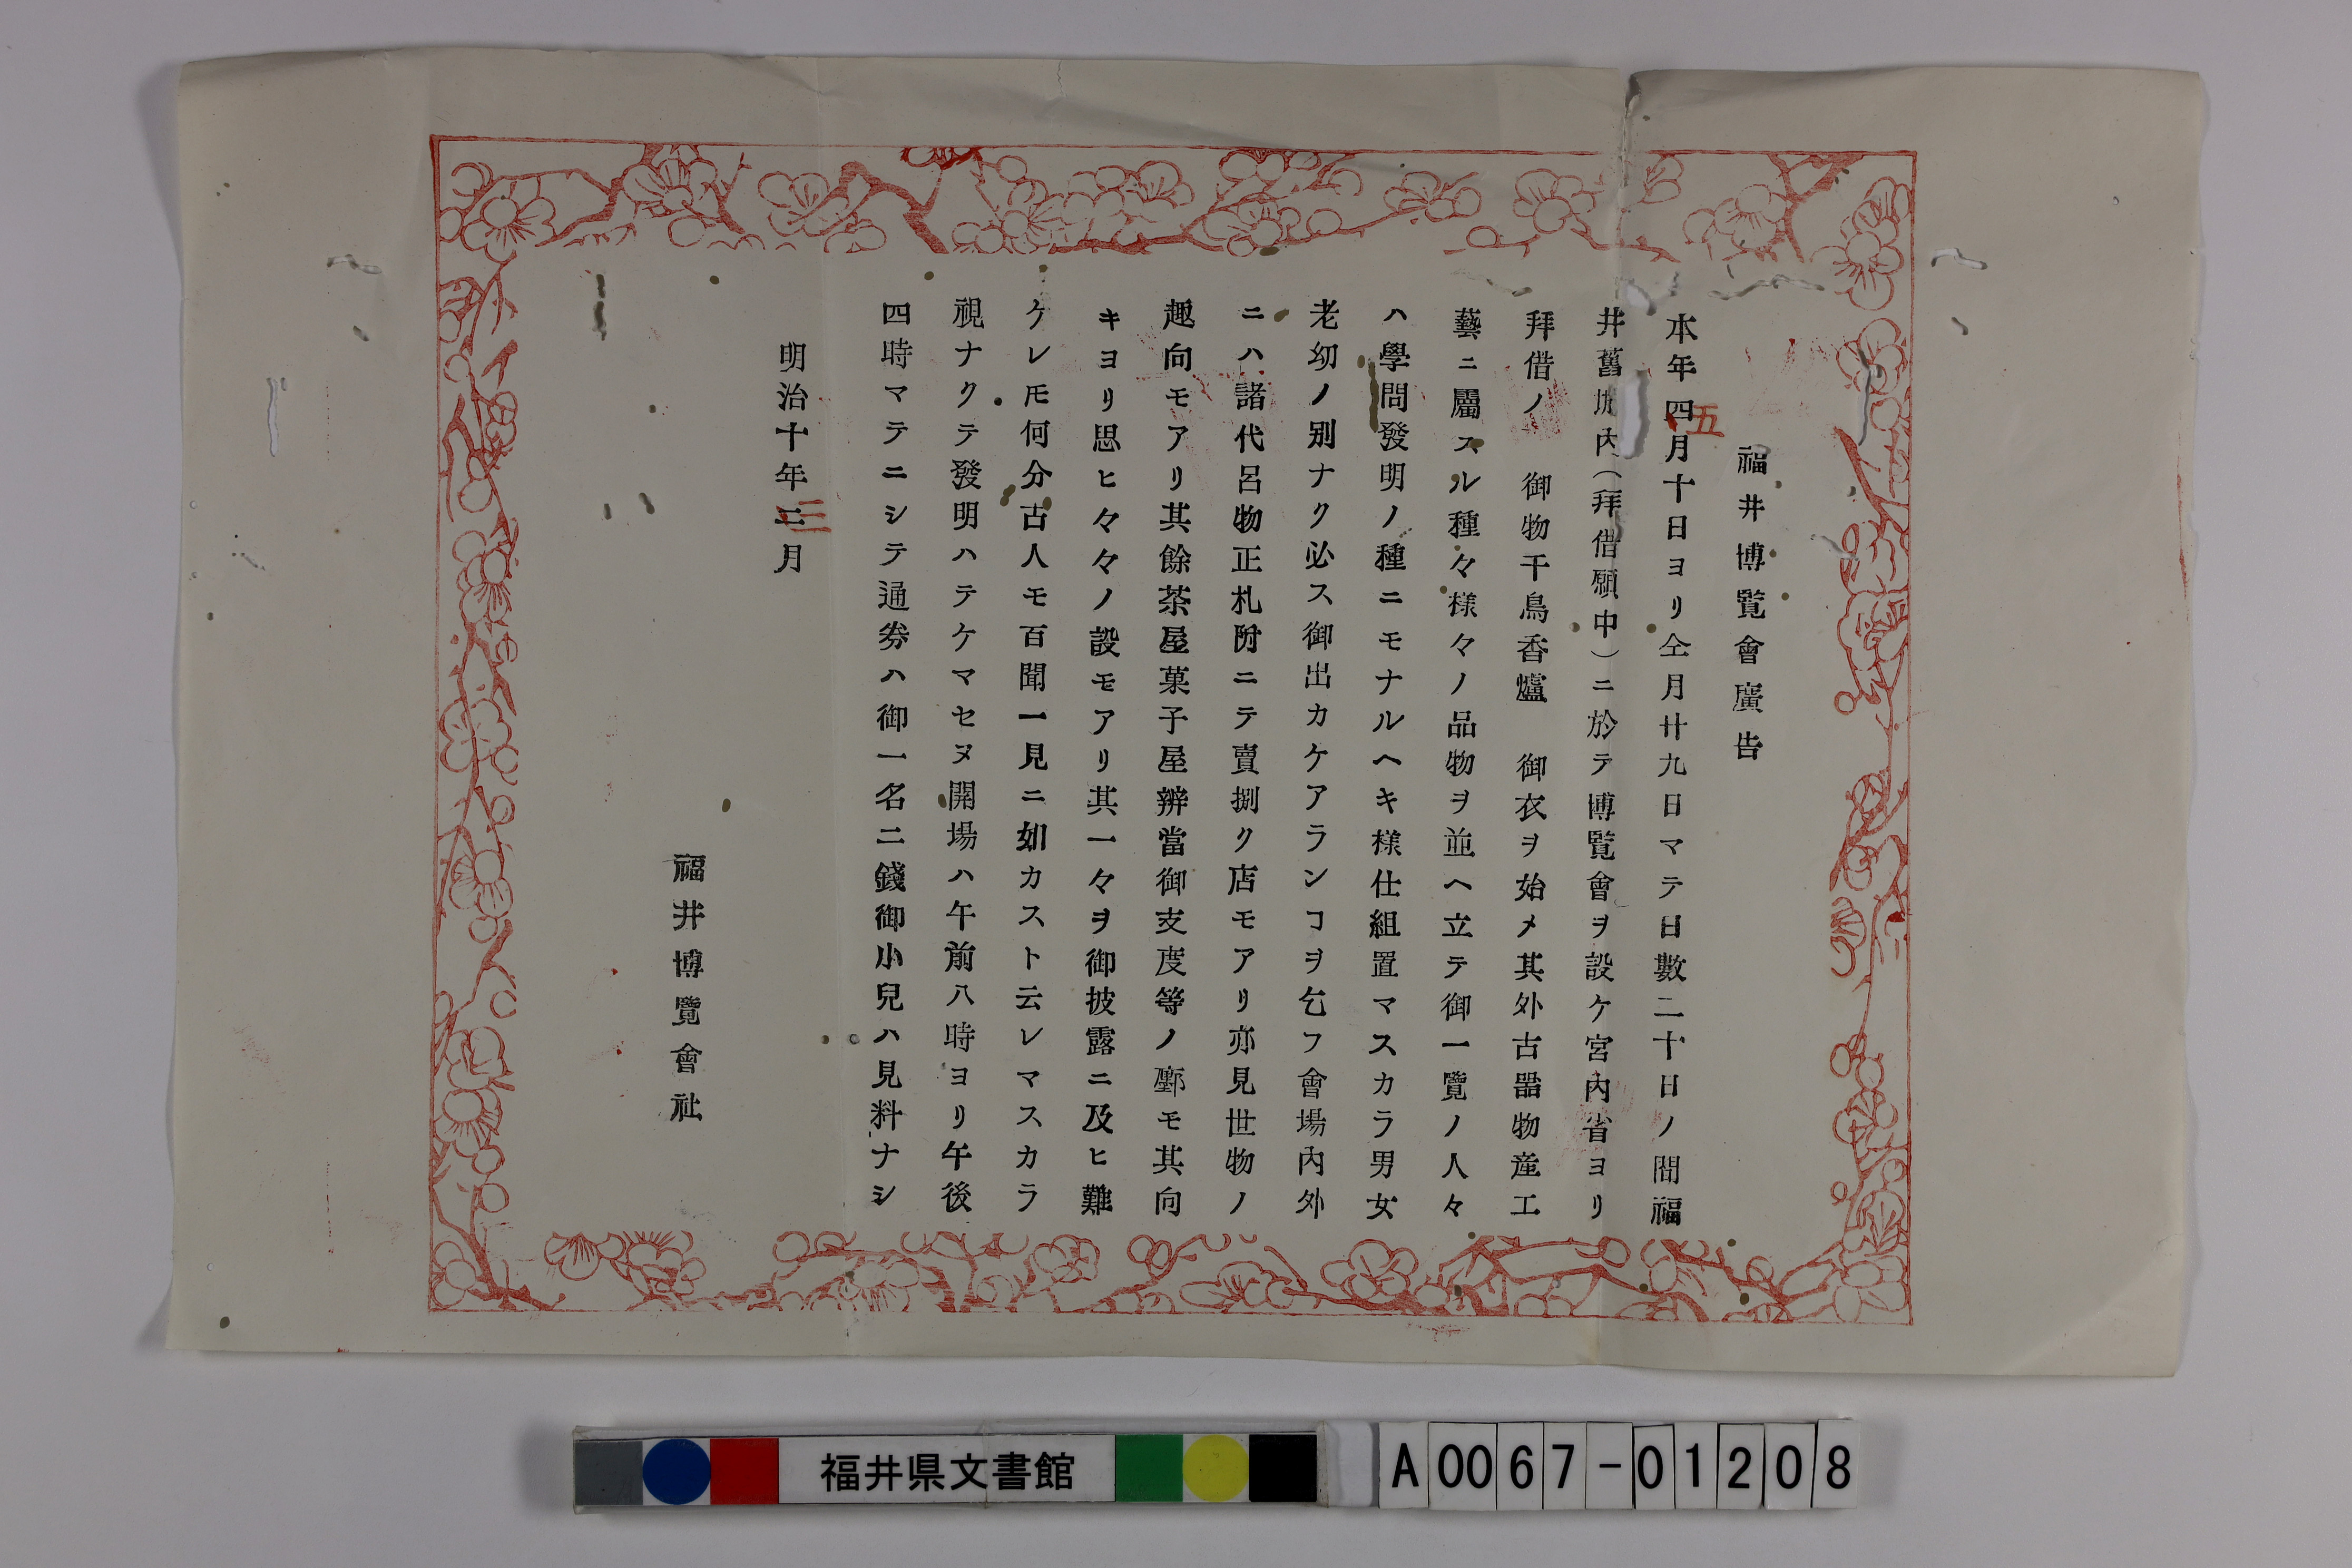 福井博覽會廣告
本年四月十日ヨリ仝月廿九日マテ日數二十日ノ間福
五
井舊城内(拜借願中)ニ於テ博覽會ヲ設ケ宮内省ヨリ
拜借ノ 御物千鳥香爐 御衣ヲ始メ其外古器物産工
藝ニ屬スル種々樣々ノ品物ヲ並ヘ立テ御一覽ノ人々
ハ學問發明ノ種ニモナルヘキ樣仕組置マスカラ男女
老幼ノ別ナク必ス御出カケアランコヲ乞フ會場内外
ニハ諸代呂物正札附ニテ賣捌ク店モアリ亦見世物ノ
趣向モアリ其餘茶屋菓子屋辨當御支度等ノ鄽モ其向
キヨリ思ヒ々々ノ設モアリ其一々ヲ御披露ニ及ヒ難
ケレ𪜈何分古人モ百聞一見ニ如カスト云レマスカラ
視ナクテ發明ハテケマセヌ開場ハ午前八時ヨリ午後
四時マテニシテ通券ハ御一名二錢御小兒ハ見料ナシ
明治十年二月
三
福井博覽會社
福井県文書館
A0067-01208